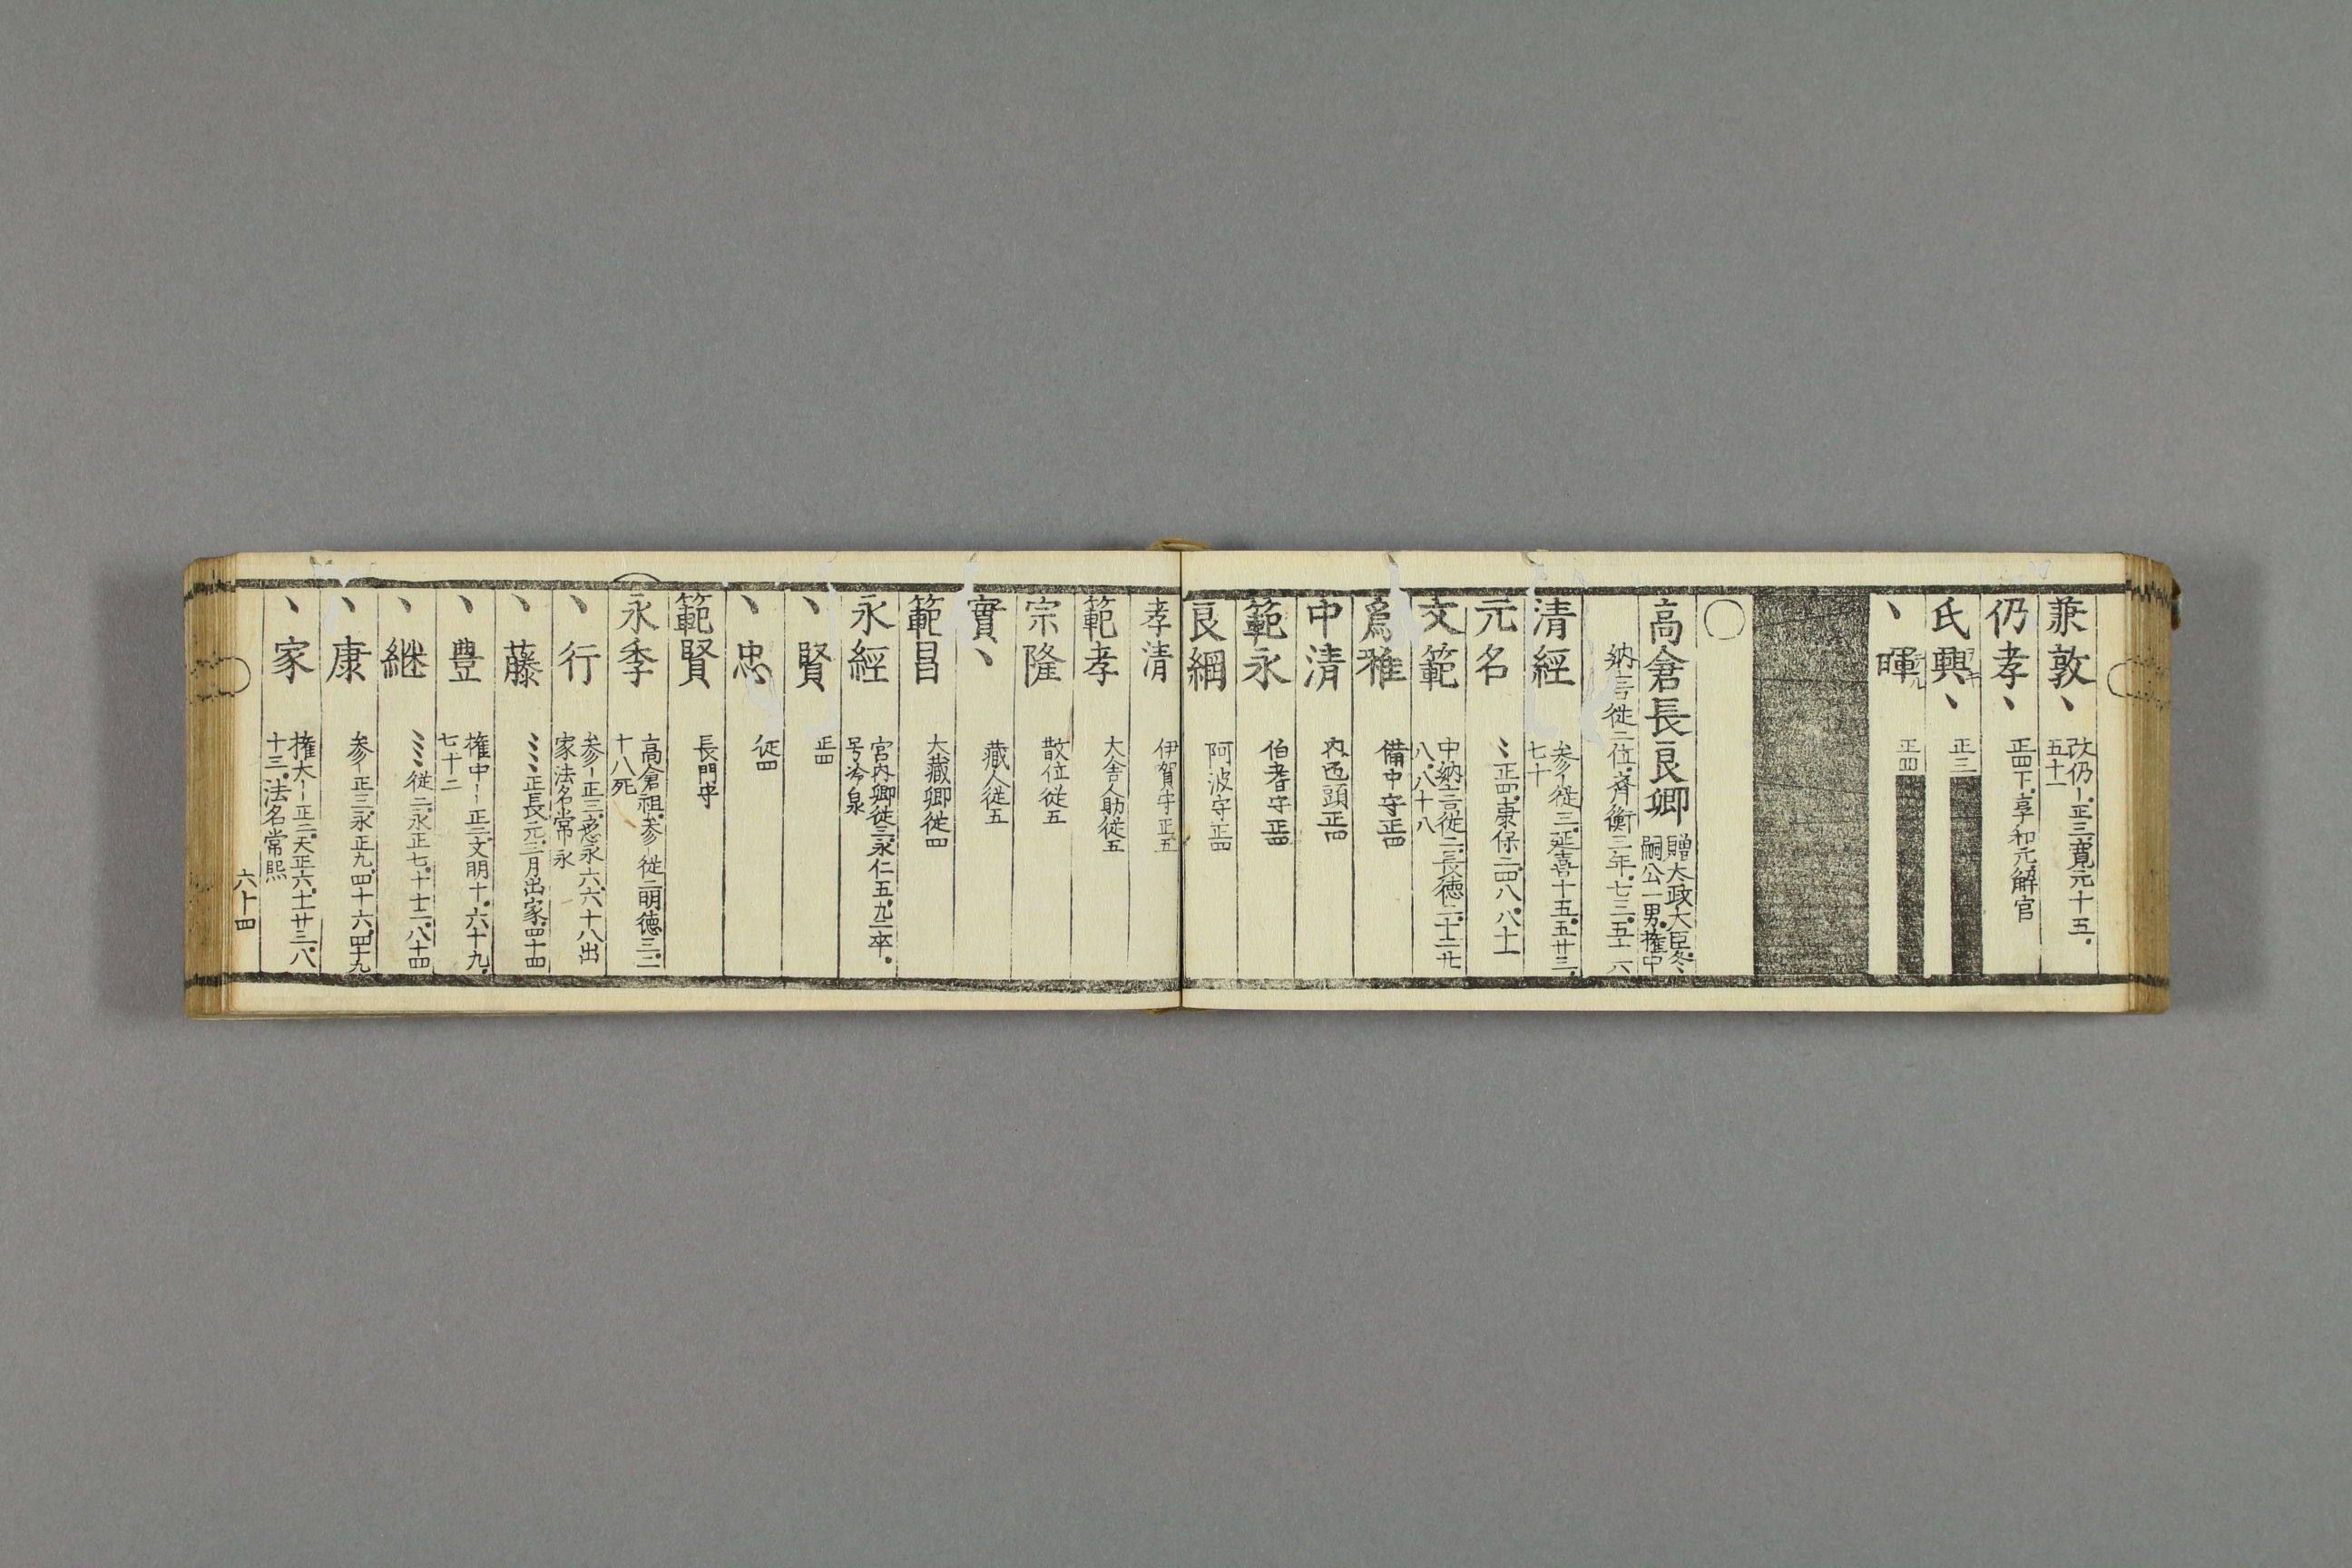 兼敦丶 改仍丨正三寛元十五
五十一
仍孝丶 正四下享和元解官
氏興丶 正三
丶暉 正四
高倉長良卿 贈太政大臣冬
嗣公一男権中
納言従二位斉衡三年七三五十六
清經 参丨従三延喜十五五廿三
七十
元名 〻正四康保二四八八十一
文範 中納言従二長徳二十二廿
八八十八
爲雅 備中守正四
中清 内匠頭正四
範永 伯耆守正四
良綱 阿波守正四
孝清 伊賀守正五
範孝 大舎人助従五
宗隆 散位従五
實丶 蔵人従五
範昌 大蔵卿従四
永經 宮内卿従三永仁五九一卒
号冷泉
丶賢 正四
丶忠 従四
範賢 長門守
永季 高倉祖参丨従二明徳三二
十八死
丶行 参丨正三應永六六十八出
家法名常永
丶藤 〻〻正長元三月出家四十四
丶豊 権中丨丨正三文明十六十九
七十二
丶継 〻〻従二永正七十十二八十四
丶康 参丨正三永正九四十六四十九
丶家 権大丨丨正二天正六十一廿三八
十三法名常熙
六十四